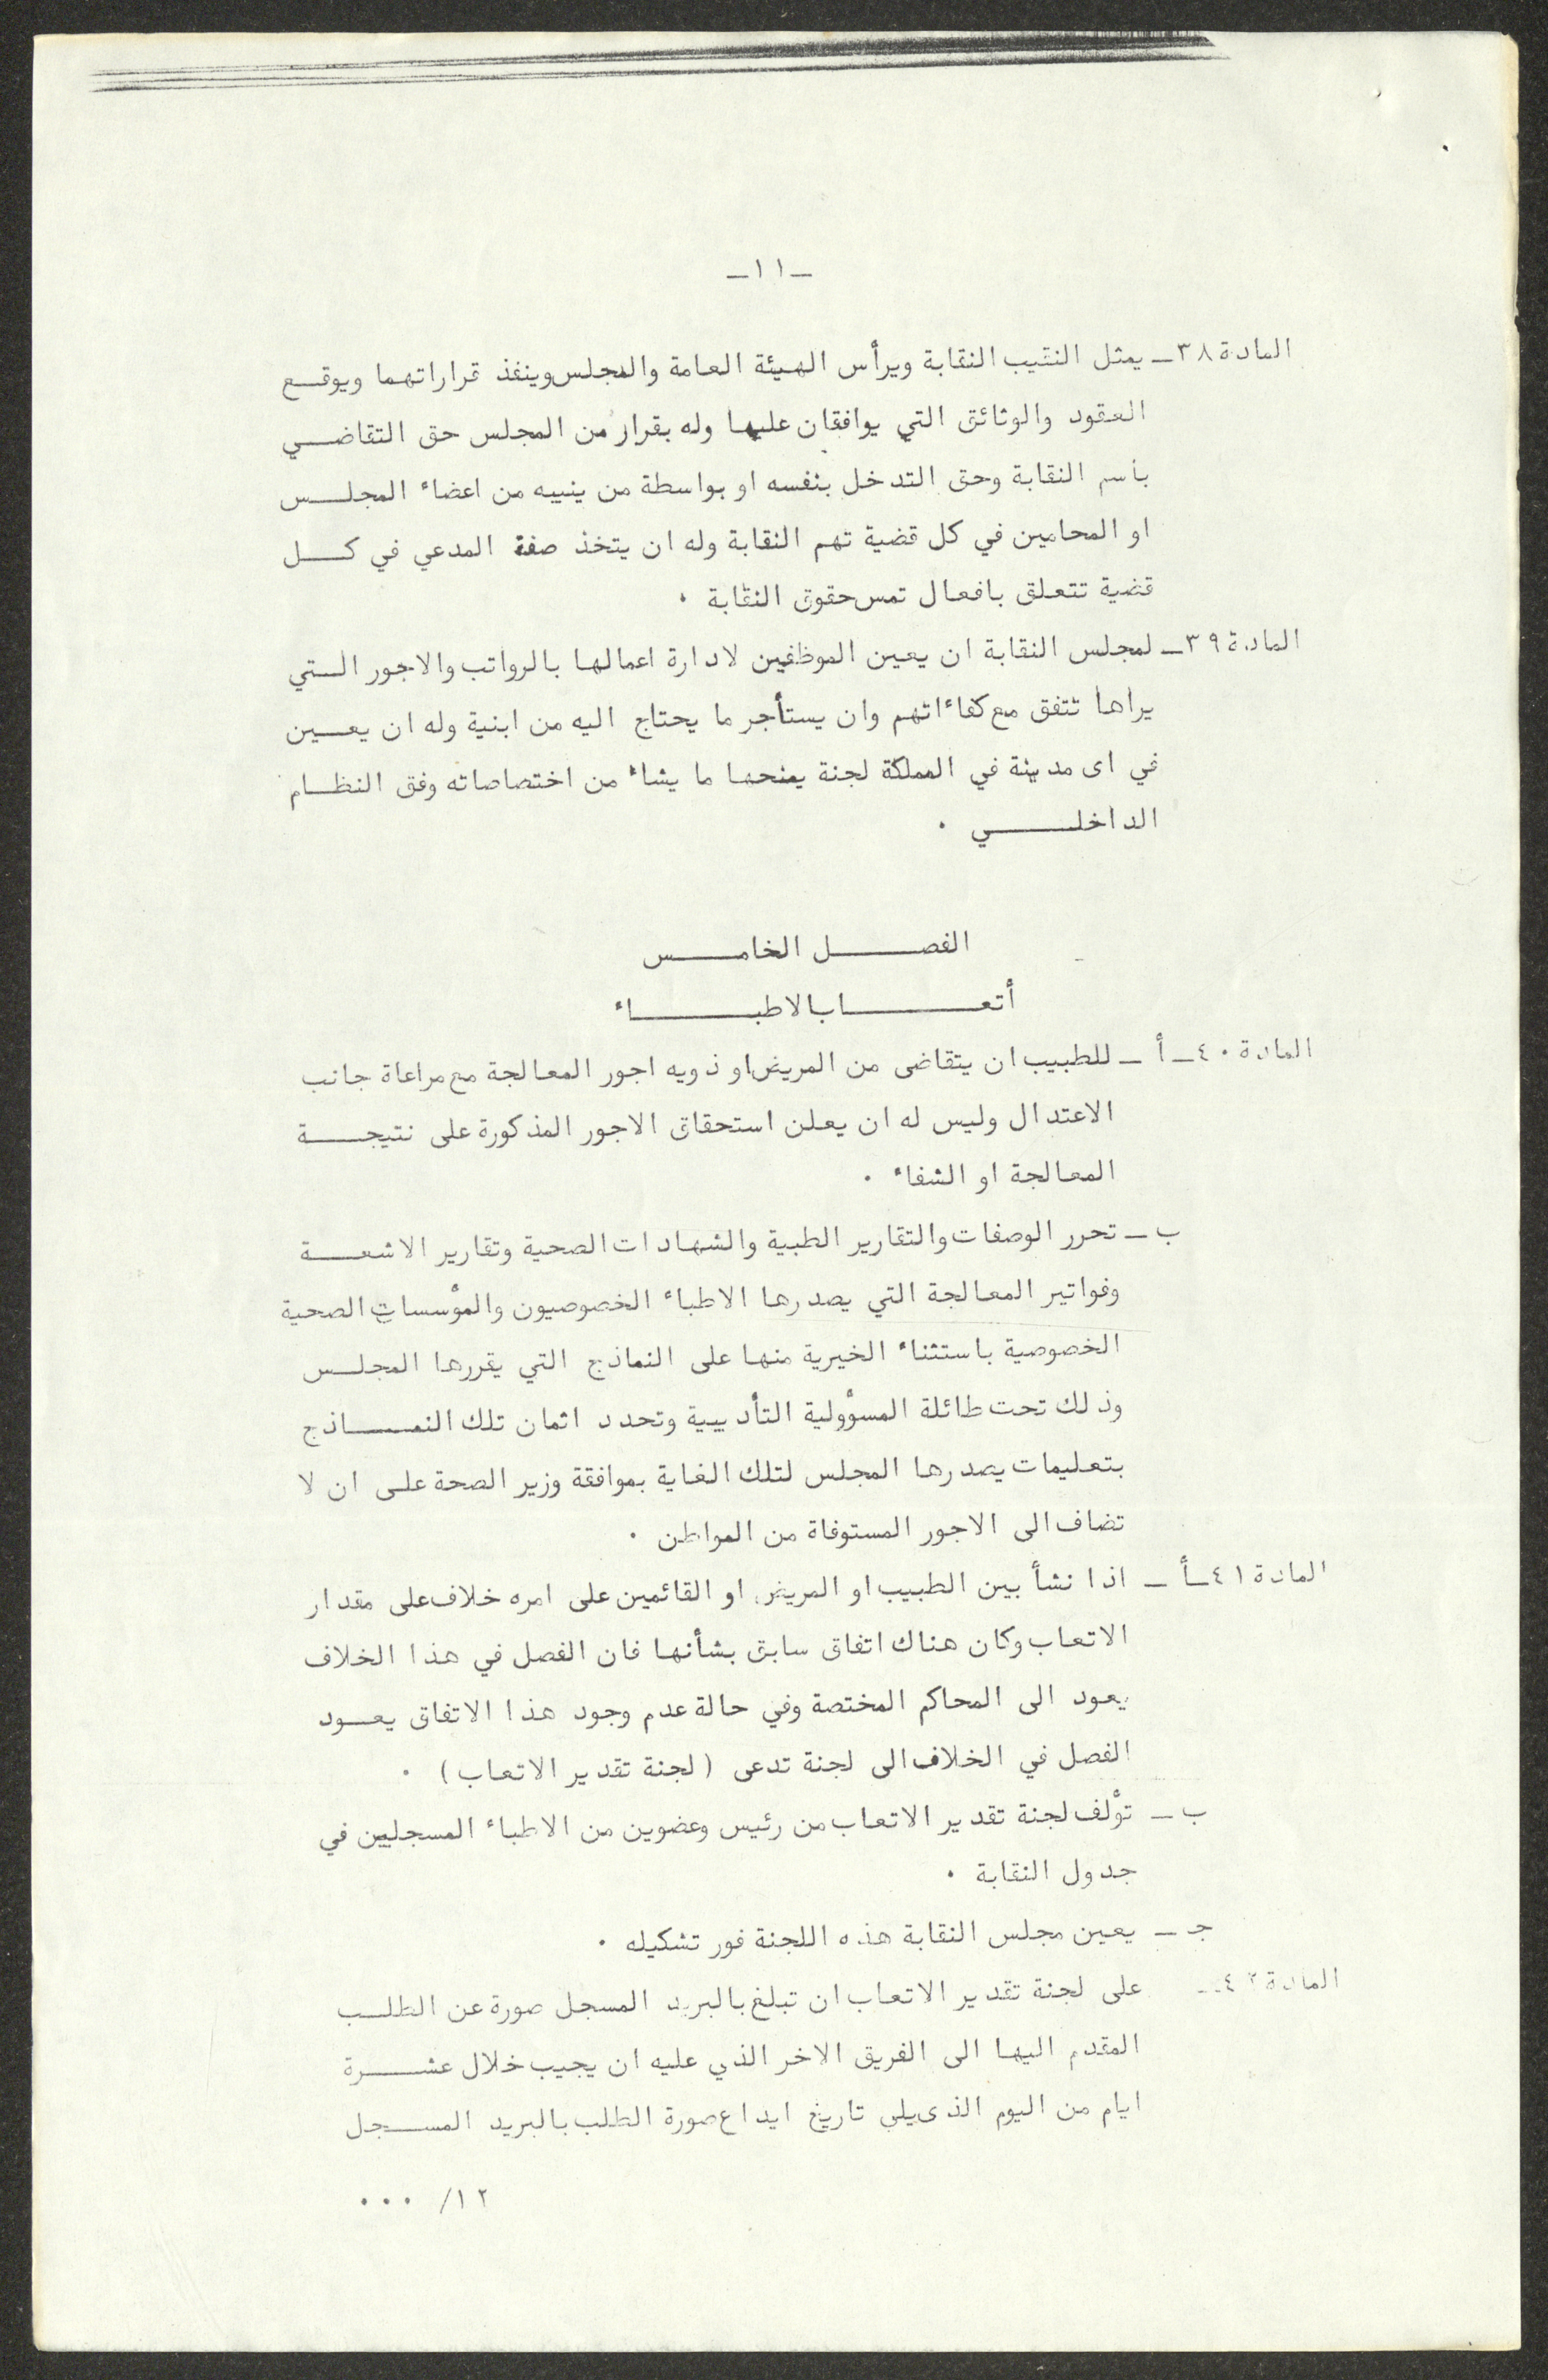 -١١-
المادة ٣٨- يمثل النقيب النقابة ويرأس الهيئة العامة والمجلس وينفذ قراراتهما ويوقع
العقود والوثائق التي يوافقان عليها وله بقرار من المجلس حق التقاضي
بأسم النقابة وحق التدخل بنفسه او بواسطة من ينيبه من اعضاء المجلس
او المحامين في كل قضية تهم النقابة وله ان يتخذ صفة المدعي في كل
قضية تتعلق بافعال تمس حقوق النقابة .
المادة ٣٩- لمجلس النقابة ان يعين الموظفين لادارة اعمالها بالرواتب والاجور التي
يراها تتفق مع كفاءاتهم وان يستأجر ما يحتاج اليه من ابنية وله ان يعين
في اى مدينة في المملكة لجنة يمنحها ما يشاء من اختصاصاته وفق النظام
الداخلي .
الفصل الخامس
أتعاب الاطباء
المادة ٤٠- أ - للطبيب ان يتقاضى من المريض او ذويه اجور المعالجة مع مراعاة جانب
الاعتدال وليس له ان يعلن استحقاق الاجور المذكورة على نتيجة
المعالجة او الشفاء .
ب - تحرر الوصفات والتقارير الطبية والشهادات الصحية وتقارير الاشعة
وفواتير المعالجة التي يصدرها الاطباء الخصوصيون والمؤسسات الصحية
الخصوصية باستثناء الخيرية منها على النماذج التي يقررها المجلس
وذلك تحت طائلة المسؤولية التأديبية وتحدد اثمان تلك النماذج
بتعليمات يصدرها المجلس لتلك الغاية بموافقة وزير الصحة على ان لا
تضاف الى الاجور المستوفاة من المواطن .
المادة ٤١- أ - اذا نشأ بين الطبيب او المريض او القائمين على امره خلاف على مقدار
الاتعاب وكان هناك اتفاق سابق بشأنها فان الفصل في هذا الخلاف
يعود الى المحاكم المختصة وفي حالة عدم وجود هذا الاتفاق يعود
الفصل في الخلاف الى لجنة تدعى (لجنة تقدير الاتعاب) .
ب - تؤلف لجنة تقدير الاتعاب من رئيس وعضوين من الاطباء المسجلين في
جدول النقابة .
جـ - يعين مجلس النقابة هذه اللجنة فور تشكيله .
المادة ٤٢- على لجنة تقدير الاتعاب ان تبلغ بالبريد المسجل صورة عن الطلب
المقدم اليها الى الفريق الاخر الذي عليه ان يجيب خلال عشرة
ايام من اليوم الذى يلي تاريخ ايداع صورة الطلب بالبريد المسجل
١٢/ ...